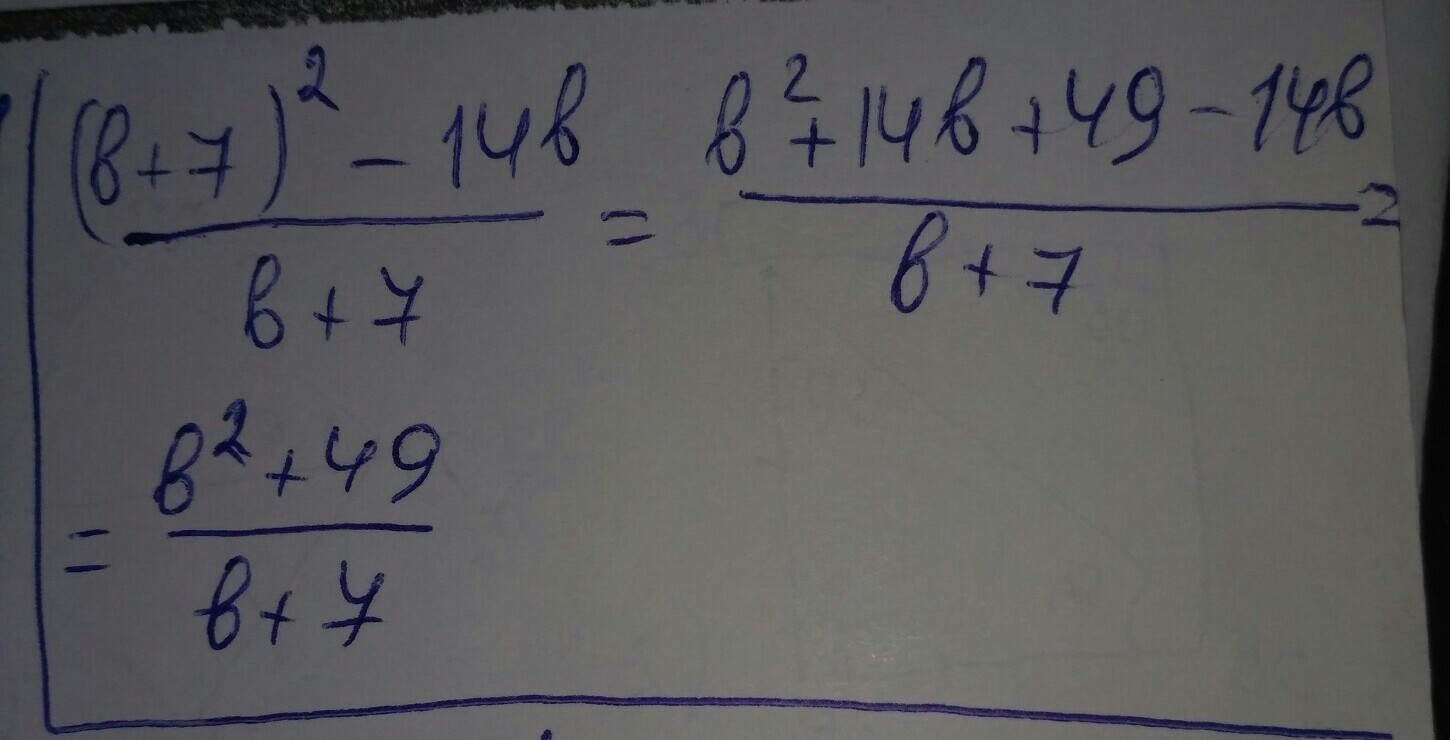 (в+7)² - 14в / в+7 = в² + 14в + 49 - 14в / в+7 =
= в² + 49 / в+7